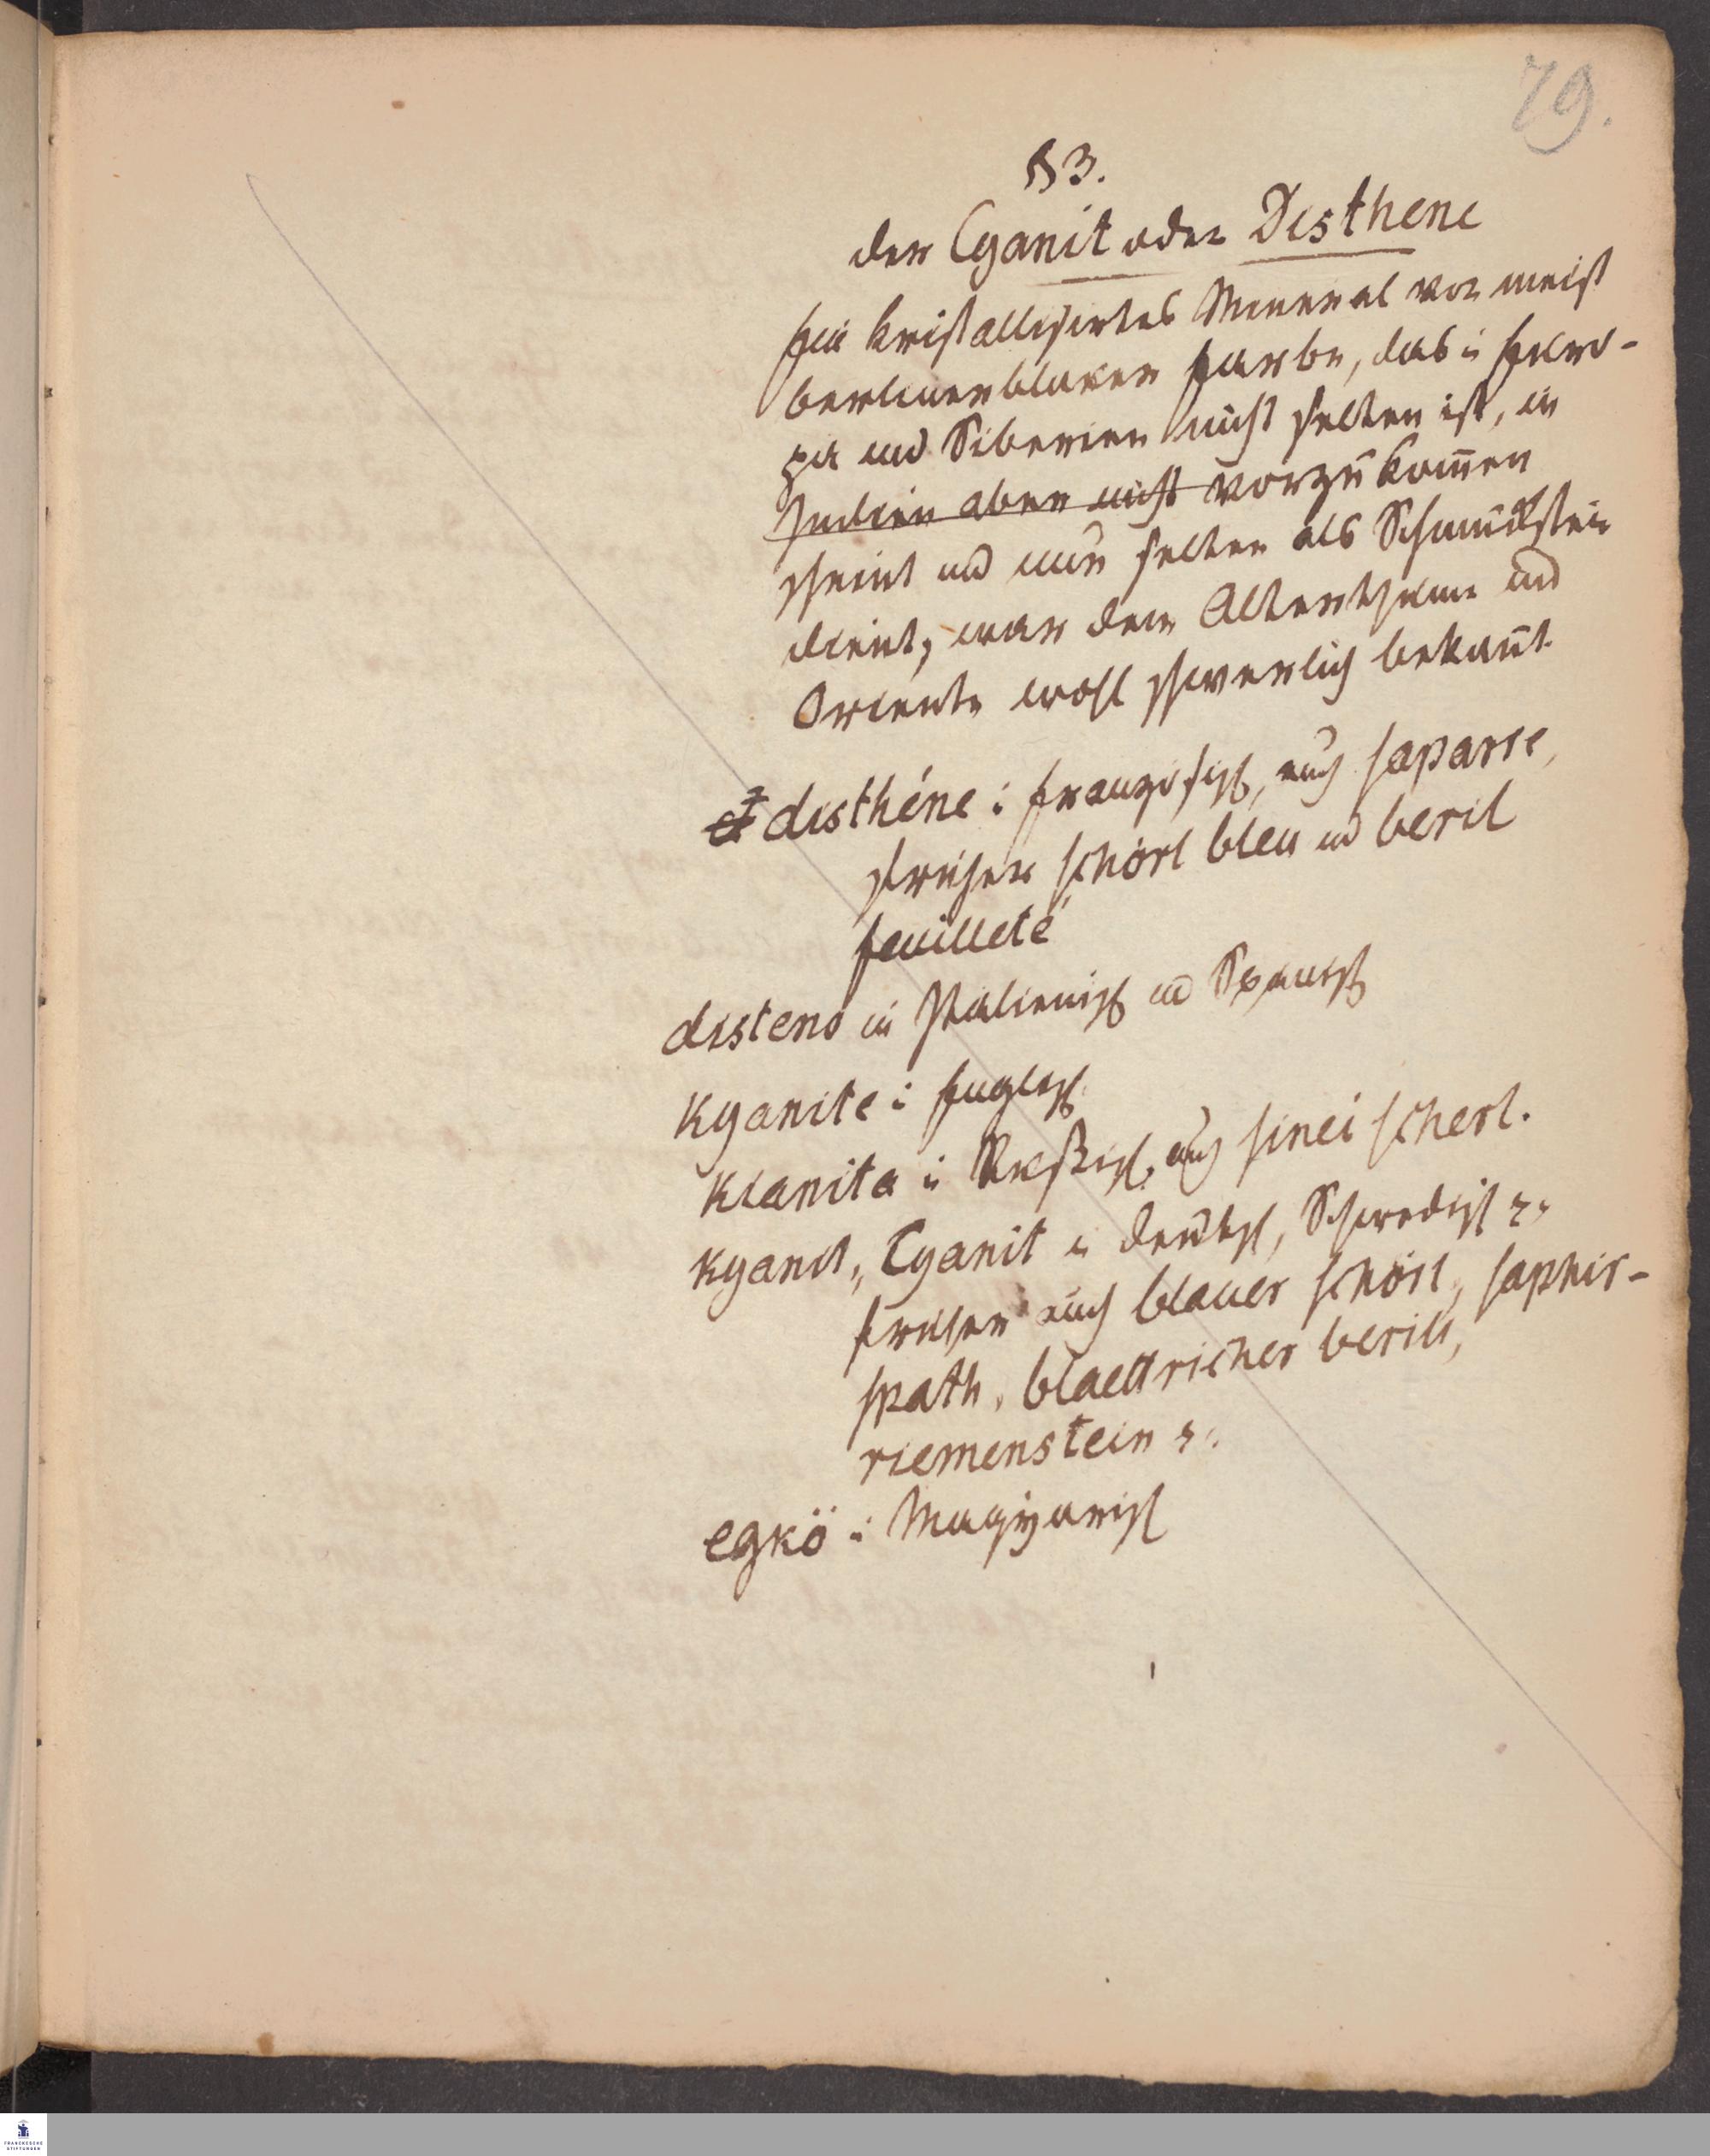 79.
§3.
der Cyanit oder Disthene
Ein kristallisirtes Mineral von meist
berlinerblauer Farbe, das in Euro-
pa und Siberien nicht selten ist, in
Indien aber nicht vorzukom̄en
scheint und nur selten als Schmuckstein
dient, war dem Alterthume und
Oriente wohl schwerlich bekan̄t.
disthéne in Französisch, auch saparre,
früher schörl bleu und beril
feuilleté
disteno in Italienisch und Spanisch
Kyanite in Englisch
Kianita in Rußisch, auch sinei scherl.
Kyanit, Cyanit in deutsch, Schwedisch
früher auch blauer schörl, saphir-
spath, blaettricher berill,
riemenstein
egkö in Magyarisch
FRANCKESCHE
STIFTUNGEN